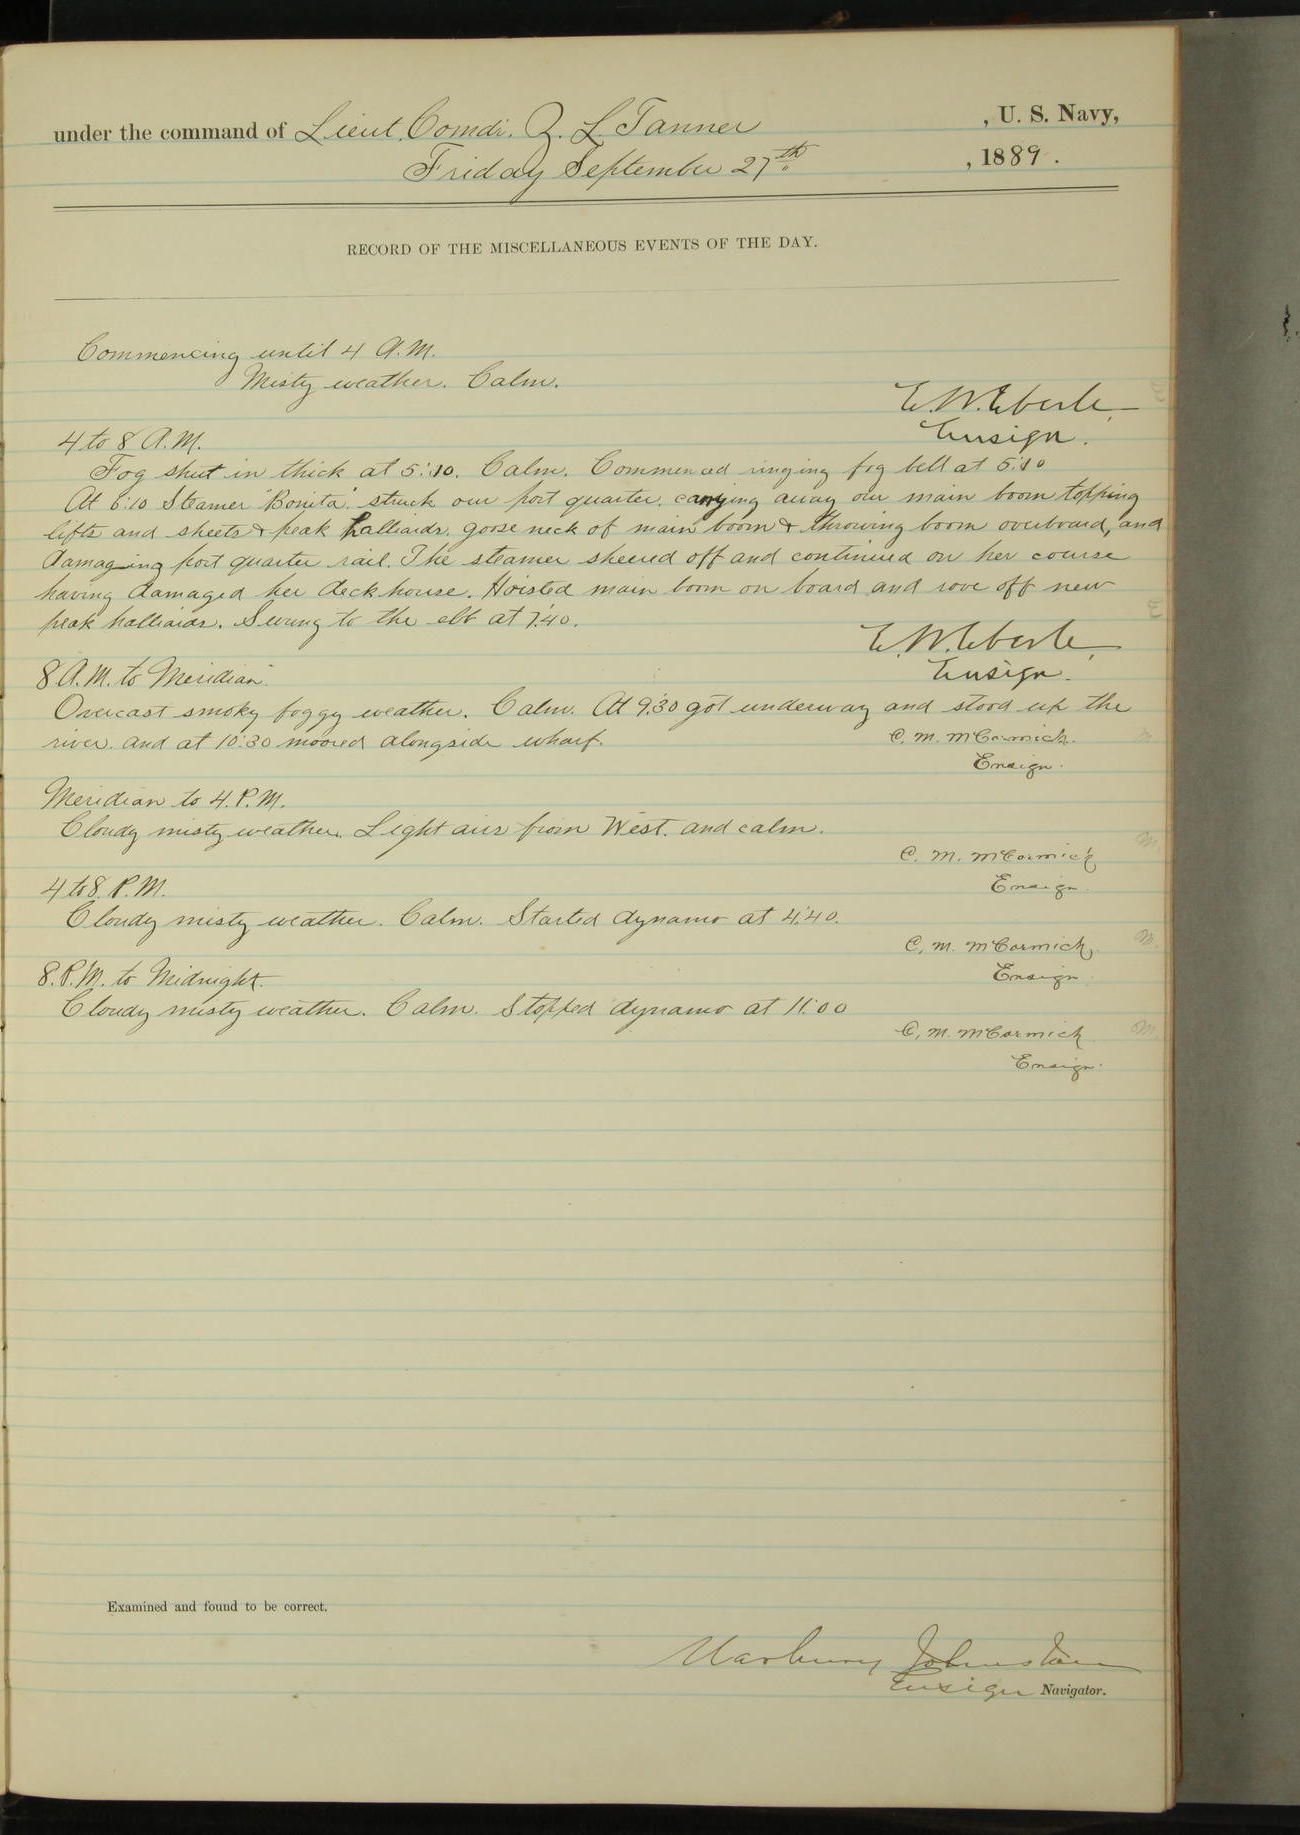 under the command of Lieut. Comdr. Z. L. Tanner , U. S. Navy,
Friday September 27th , 1889.
RECORD OF THE MISCELLANEOUS EVENTS OF THE DAY.
Commencing until 4 A.M.
Misty weather. Calm.
E. W. Eberle,
Ensign.
4 to 8 A.M.
Fog shut in thick at 5:10. Calm. Commenced ringing fog bell at 5:10
At 6:10 Steamer "Bonita" struck our port quarter, carrying away our main boom topping
lifts and sheets & peak halliards, goose neck of main boom & throwing boom overboard, and
damaging port quarter rail. The steamer sheered off and continued on her course
having damaged her deck house. Hoisted main boom on board and rove off new
peak halliards. Swung to the ebb at 7:40.
E. W. Eberle,
Ensign.
8 A.M. to Meridian.
Overcast smoky foggy weather. Calm. At 9:30 got underway and stood up the
river. and at 10:30 moored alongside wharf.
C. M. McCormick.
Ensign.
Meridian to 4. P.M.
Cloudy misty weather. Light airs from West. and calm.
C. M. McCormick
Ensign.
4 to 8. P.M.
Cloudy misty weather. Calm. Started dynamo at 4:40.
C, M. McCormick,
Ensign
8. P.M. to Midnight.
Cloudy misty weather. Calm. Stopped dynamo at 11:00
C, M. McCormick
Ensign.
Examined and found to be correct.
Marbury Johnston
Ensign Navigator.